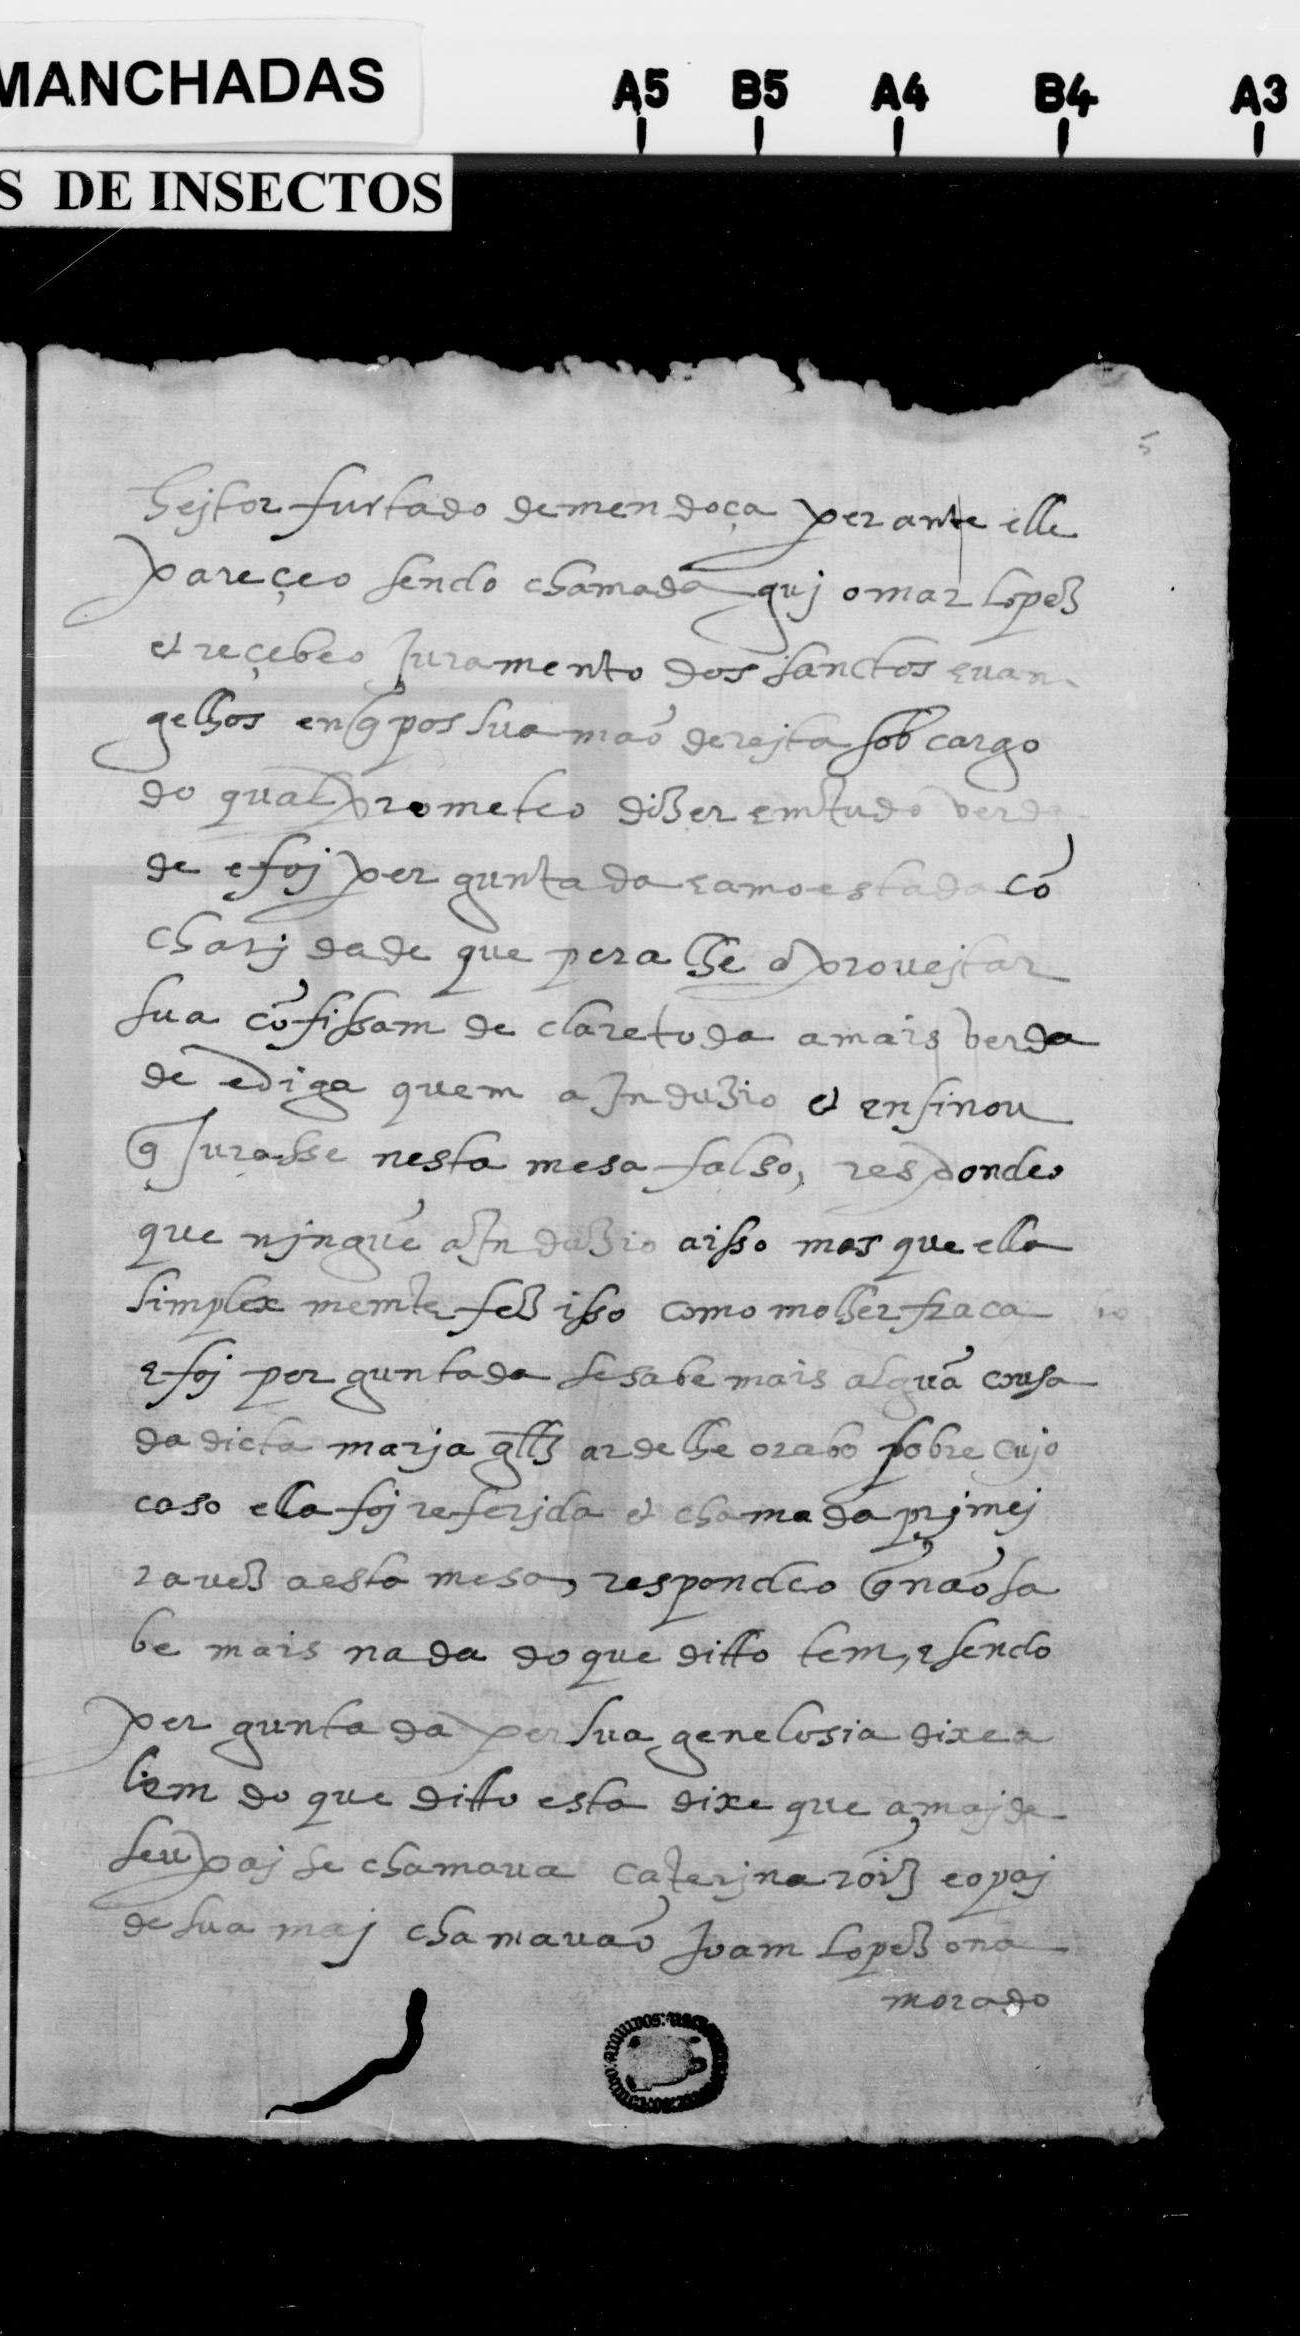 MANCHADAS
A5 B5 A4 B4 A3
S DE INSECTOS
5
heitor furtado de mendoça perante elle
pareçeo sendo chamada guiomar lopez
et reçebeo Juramento dos sanctos euan-
gelhos en q̃ pos sua maõ dereita sob cargo
do qual prometeo dizer em tudo verda
de e foj perguntada e amoestada cõ
charjdade que pera lhe aproueitar
sua cõfissam declare toda a mais verda
de e diga quem a Induzio et ensinou
q̃ Jurasse nesta mesa falso, respondeo
que njnguẽ a Induzio a isso mas que ella
simplexmemte fez isso como molher fraca
e foj perguntada se sabe mais algũa cousa
da dicta marja glz̃ arde lhe o rabo sobre cujo
caso ella foj referjda et chamada prjmej
ra uez a esta mesa, respondeo q̃ naõ sa
be mais nada do que ditto tem, e sendo
perguntada per sua genelosia dixe a
liem do que ditto esta dixe que a maj de
seu paj se chamaua Caterjna roiz̃ e o paj
de sua maj chamauaõ Joam lopez o na
morado